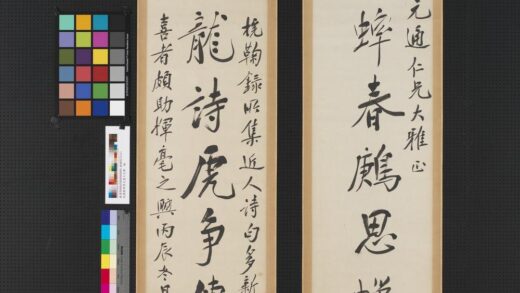 元通仁兄大雅正
春思
梡鞠録集近人詩句多新
龍詩虎争
喜者頗助揮毫之興丙辰冬月